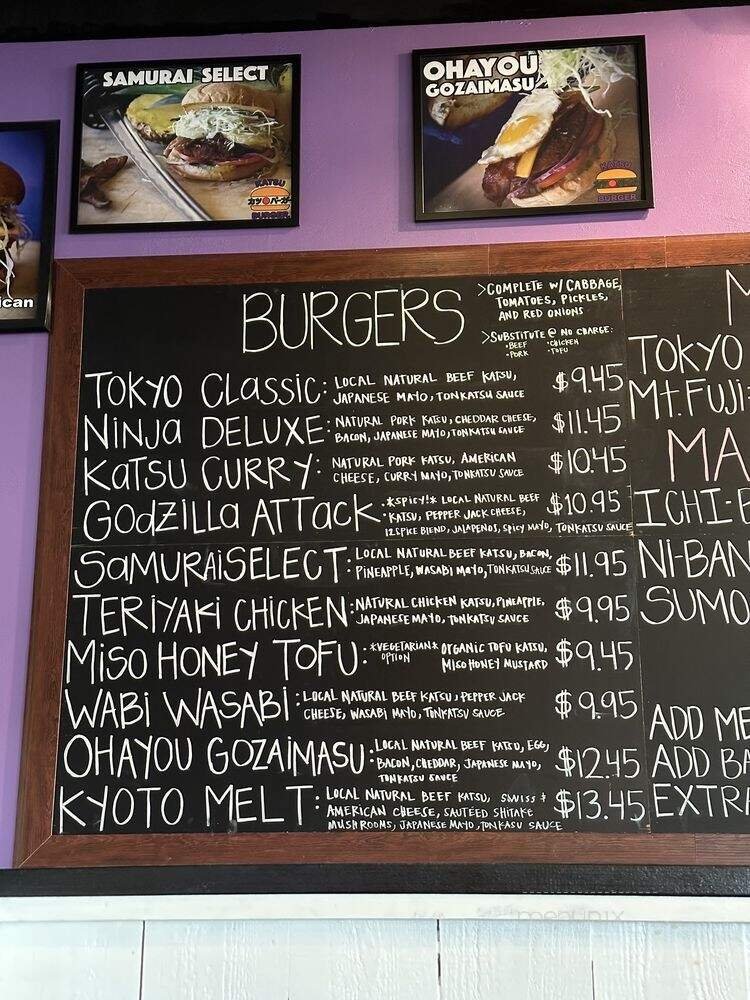 SAMURAI SELECT
KATSU
カツバーガー
BURGER
OHAYOU
GOZAIMASU
KATSU
BURGER
ican
BURGERS
>COMPLETE W/ CABBAGE,
TOMATOES, PICKLES,
AND RED ONIONS
>SUBSTITUTE @ NO CHARGE:
•BEEF •CHICKEN
•PORK •TOFU
TOKYO CLASSIC: LOCAL NATURAL BEEF KATSU, $9.45
JAPANESE MAYO, TONKATSU SAUCE
NINJA DELUXE: NATURAL PORK KATSU, CHEDDAR CHEESE, $11.45
BACON, JAPANESE MAYO, TONKATSU SAUCE
KATSU CURRY: NATURAL PORK KATSU, AMERICAN $10.45
CHEESE, CURRY MAYO, TONKATSU SAUCE
GODZILLA ATTACK: *SPICY!* LOCAL NATURAL BEEF $10.95
KATSU, PEPPER JACK CHEESE,
12 SPICE BLEND, JALAPENOS, SPICY MAYO, TONKATSU SAUCE
SAMURAI SELECT: LOCAL NATURAL BEEF KATSU, BACON, $11.95
PINEAPPLE, WASABI MAYO, TONKATSU SAUCE
TERIYAKI CHICKEN: NATURAL CHICKEN KATSU, PINEAPPLE, $9.95
JAPANESE MAYO, TONKATSU SAUCE
MISO HONEY TOFU: *VEGETARIAN* ORGANIC TOFU KATSU, $9.45
OPTION MISO HONEY MUSTARD
WABI WASABI: LOCAL NATURAL BEEF KATSU, PEPPER JACK $9.95
CHEESE, WASABI MAYO, TONKATSU SAUCE
OHAYOU GOZAIMASU: LOCAL NATURAL BEEF KATSU, EGG, $12.45
BACON, CHEDDAR, JAPANESE MAYO,
TONKATSU SAUCE
KYOTO MELT: LOCAL NATURAL BEEF KATSU, SWISS + $13.45
AMERICAN CHEESE, SAUTÉED SHITAKE
MUSHROOMS, JAPANESE MAYO, TONKASU SAUCE
M
TOKYO
Mt. FUJI-
MA
ICHI-
NI-BAN
SUMO
ADD ME
ADD BA
EXTRA
menupix